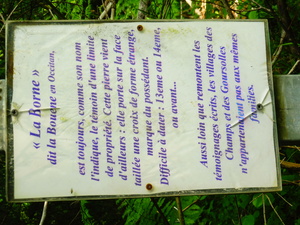 « La Borne »
dit la Boudne en Occitan,
est toujours, comme son nom
l'indique, le témoin d'une limite
de propriété. Cette pierre vient
d'ailleurs : elle porte sur la face
taillée une croix de forme étrange,
marque du possédant.
Difficile à dater : 13eme ou 14eme,
ou avant...
Aussi loin que remontent les
témoignages écrits, les villages des
Champs et des Goursolles
n'appartenaient pas aux mêmes
familles.